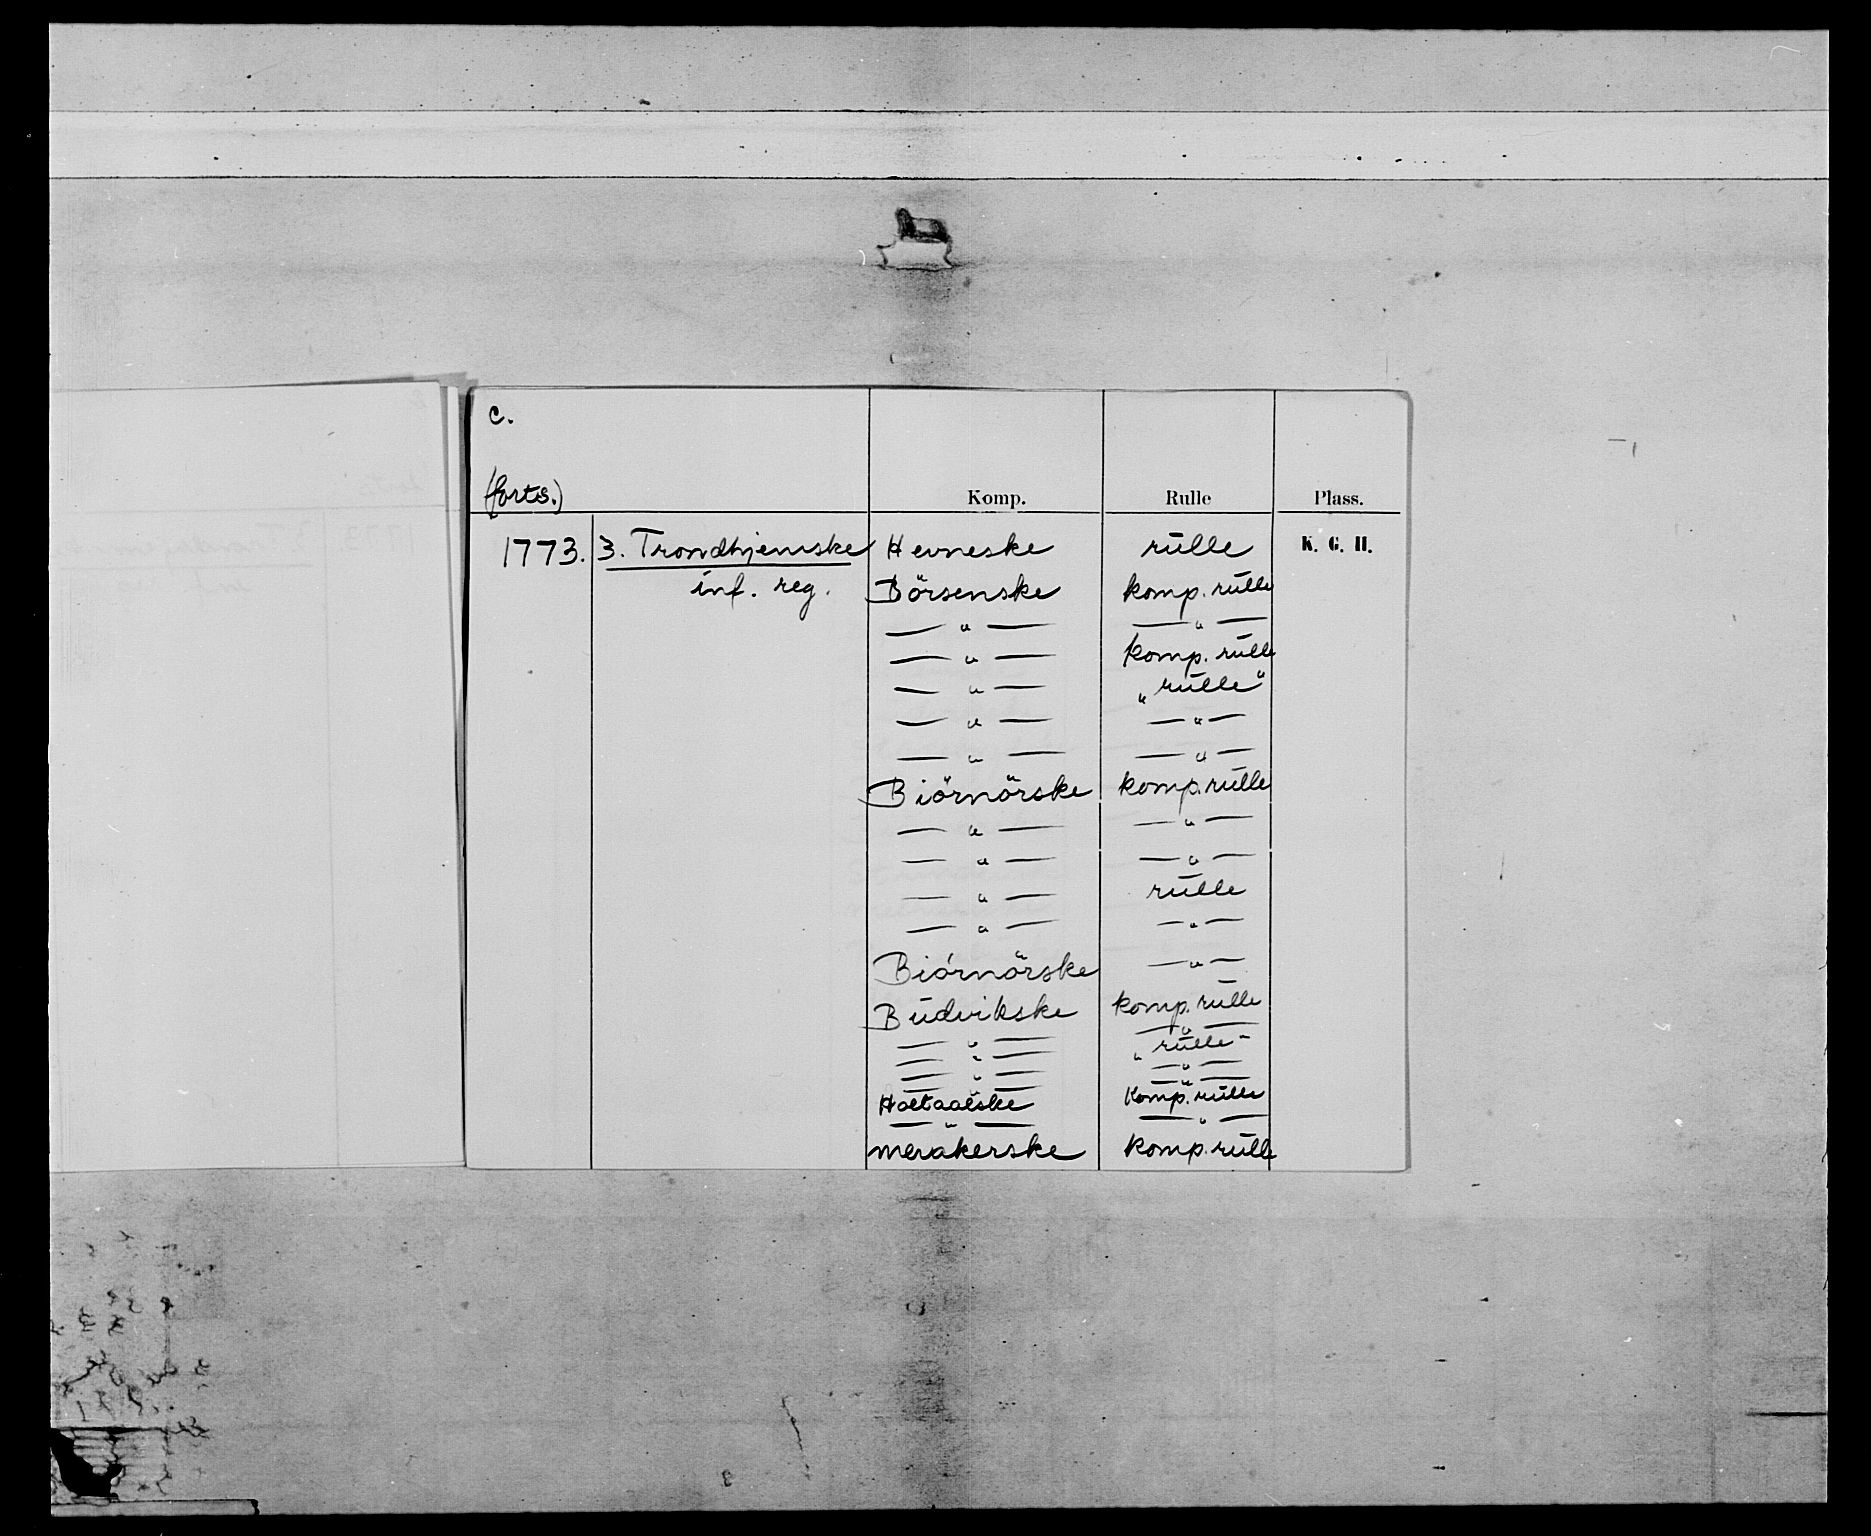 c.
(forts.) Komp. Rulle Plass.
1773. 3. Trondhjemske Hevneske rulle K. G. H.
inf. reg. Börsenske komp. rulle
— " — — " —
— " — komp. rulle
— " — „rulle"
— " — — " —
— " — — " —
Biörnörske komp. rulle
— " — — " —
— " — — " —
— " — rulle
— " — — " —
Biörnörske — " —
Budvikske komp. rulle
— " — — " —
— " — „rulle"
— " — — " —
— " — — " —
Holtaalske Komp. rulle
— " — — " —
merakerske komp. rulle